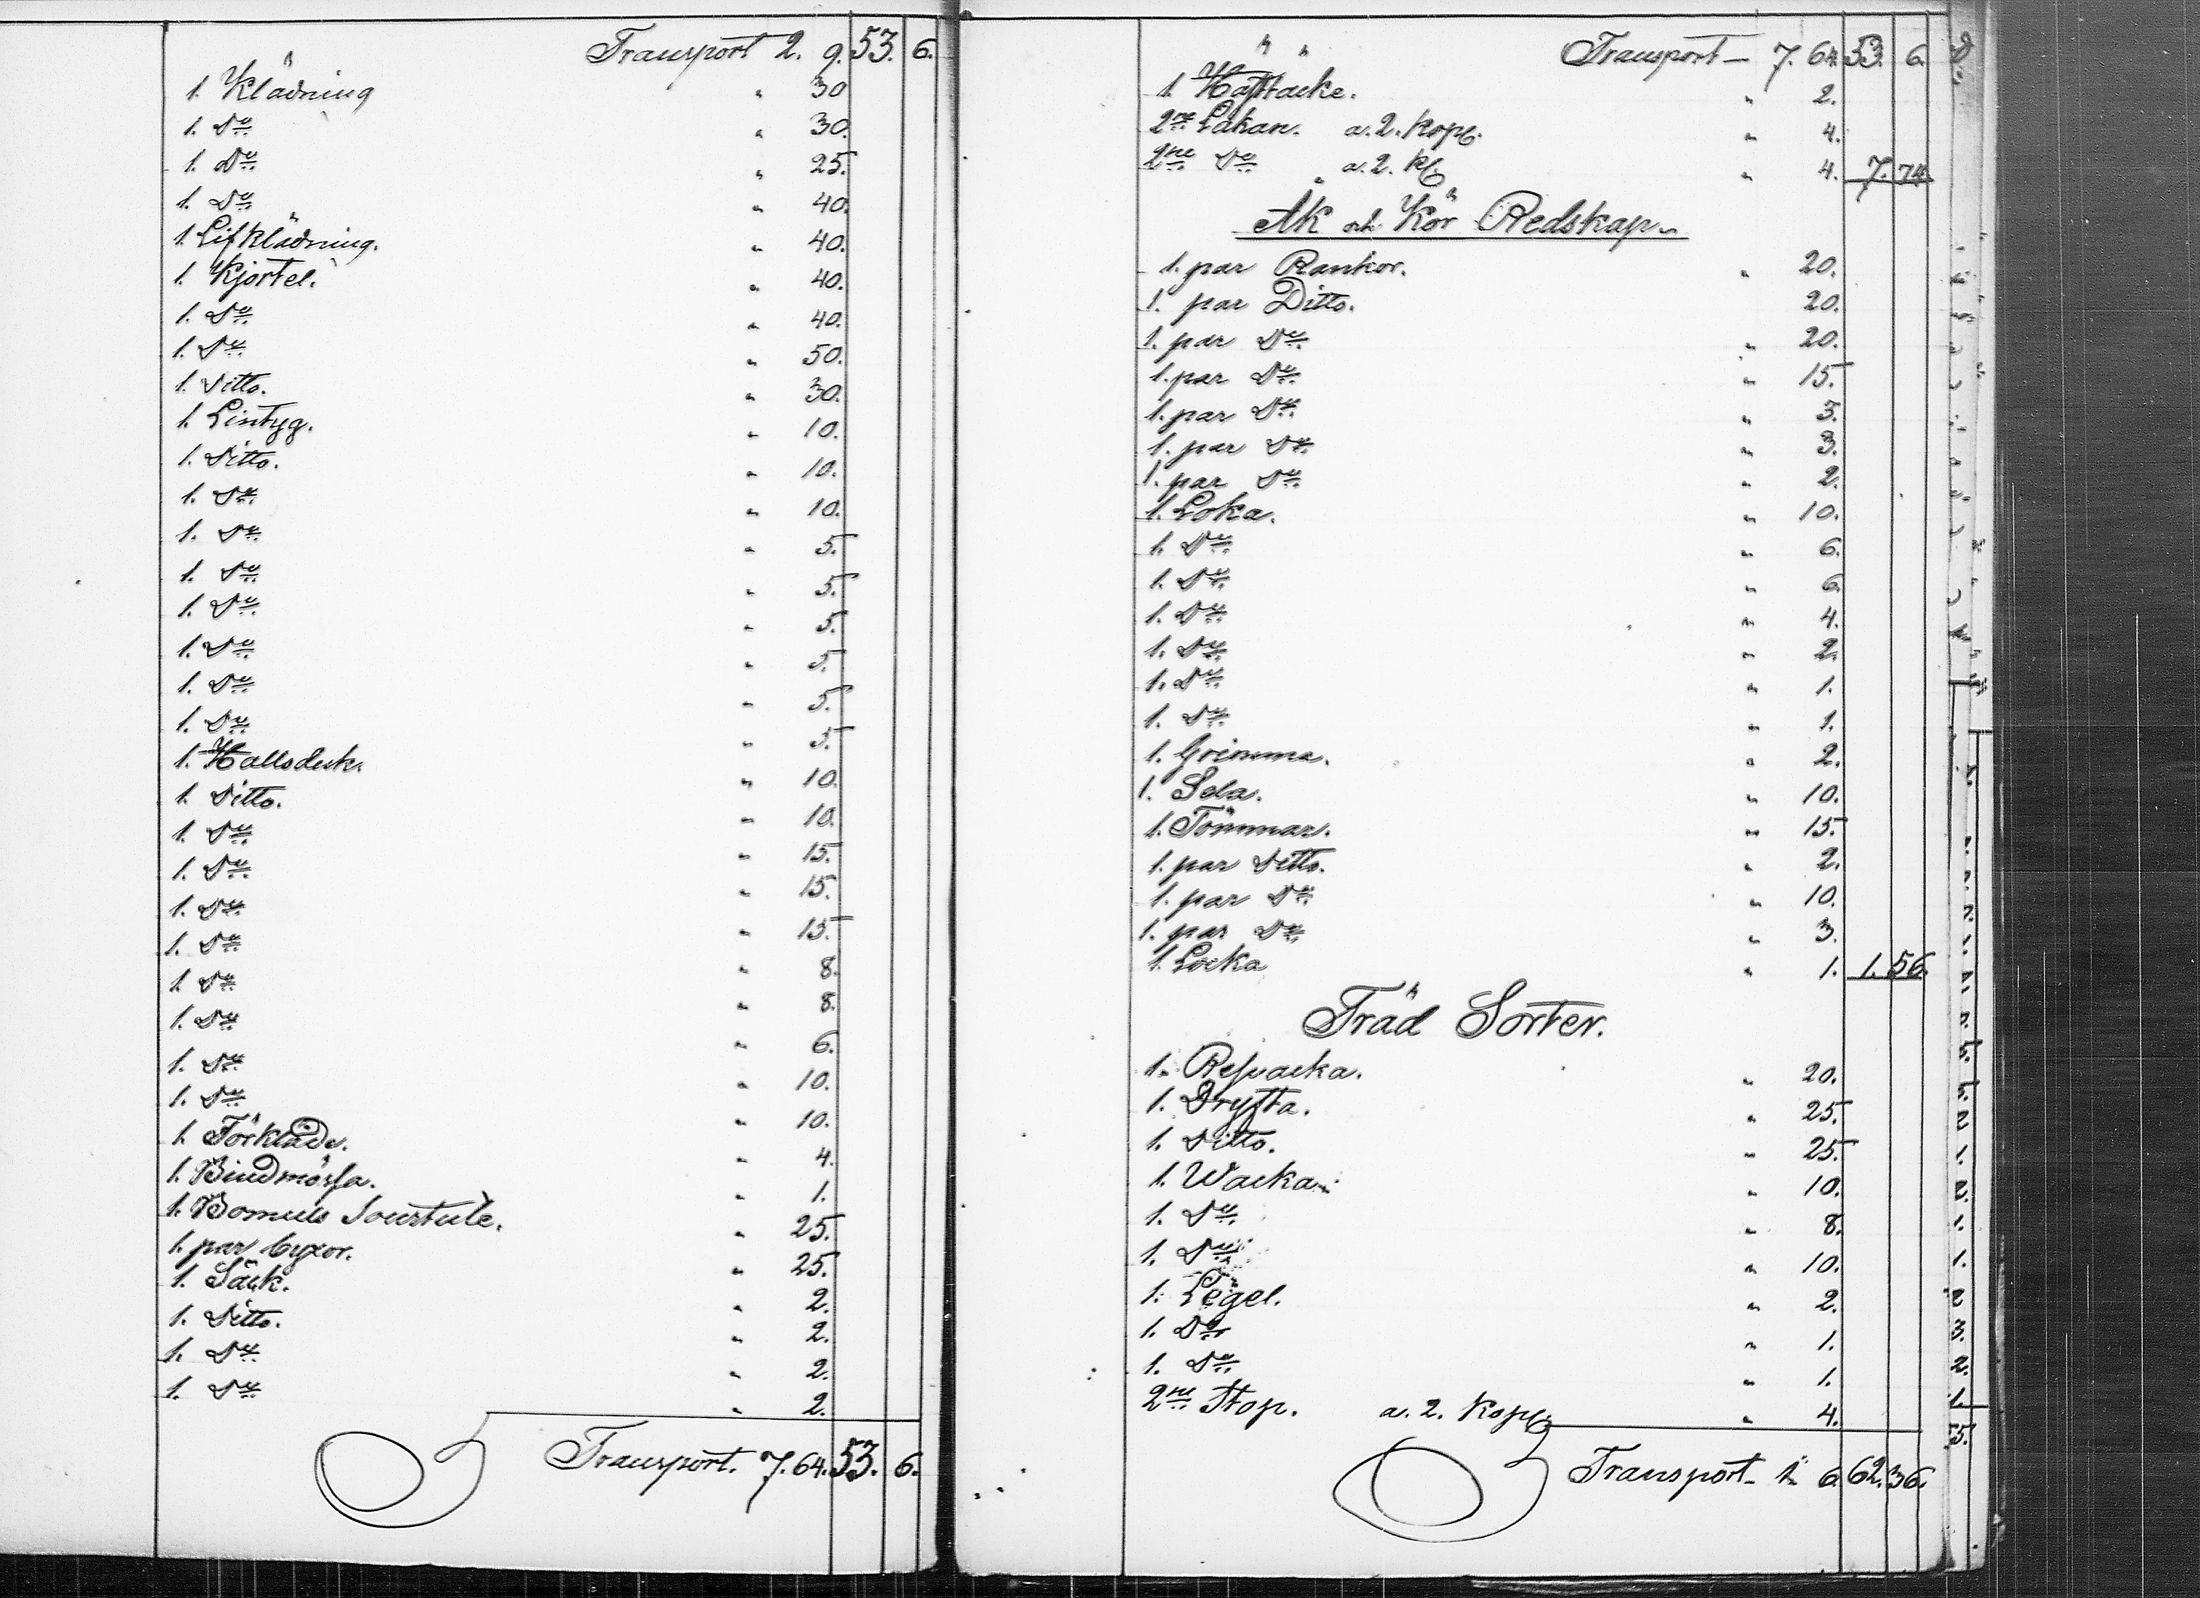 Transport 2. 9. 53. 6.
1. Klädning " 30
1. Do " 30.
1. Do " 25.
1. Do " 40.
1. Lifklädning. " 40.
1. Kjortel. " 40.
1. Do " 40.
1. Do " 50.
1. Ditto. " 30.
1. Lintyg. " 10.
1. Ditto. " 10.
1. Do " 10.
1. Do " 5.
1. Do " 5.
1. Do " 5.
1. Do " 5.
1. Do " 5.
1. Do " 5
1. Hallsduk. " 10.
1. Ditto. " 10.
1. Do " 15.
1. Do " 15.
1. Do " 15.
1. Do " 8.
1. Do " 8.
1. Do " 6.
1. Do " 10.
1. Do " 10.
1. Förkläde. " 4.
1. Bindmössa. " 1.
1. Bomuls " 25.
1. par byxor. " 25.
1. Säck. " 2.
1. Ditto. " 2.
1. Do " 2.
1. Do " 2.
Transport. 7. 64. 53. 6.
Transport 7. 64. 53. 6.
1. Häfftäcke. " 2.
2ne Lakan. a. 2. Kop. " 4.
2ne Do " a. 2. K. " 4. 7. 74
Åk och Kör Redskap
1. par Rankor. " 20.
1. par Ditto. 20.
1. par Do " 20.
1. par Do " 15.
1. par Do " 5.
1. par Do " 3.
1. par Do " 2.
1. Loka. " 10.
1. Do " 6.
1. Do " 6.
1. Do " 4.
1. Do " 2.
1. Do " 1.
1. Do " 1.
1. Grimma. " 2.
1. Sela. " 10.
1. Tömmar. " 15.
1. par Ditto. " 2.
1. par Do " 10.
1. par Do " 3.
1. Locka " 1. 1. 56.
Träd Sorter.
1. Refvacka. " 20.
1. Dryfta. " 25.
1. Ditto. " 25.
1. Wacka " 10.
1. Do " 8.
1. Do " 10.
1. Legel. " 2.
1. Do " 1.
1. Do " 1.
2ne Stop. a. 2. Kop. " 4.
Transport 1 6. 62. 36.